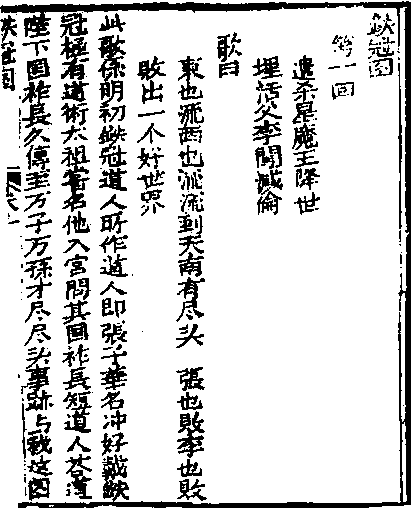 鉄冠图
第一回
遣杀星魔王降世
埋活父李闖滅倫
歌曰
東也流西也流流到天南有尽头　張也敗李也敗
敗出一个好世界
此歌係明初鉄冠道人所作道人即張子華名冲好戴鉄
冠極有道術太祖嘗名他入宮問其国祚長短道人答道
陛下国祚長久傳至万子万孫才尽尽头事跡与戟这图
鉄冠图
卷一